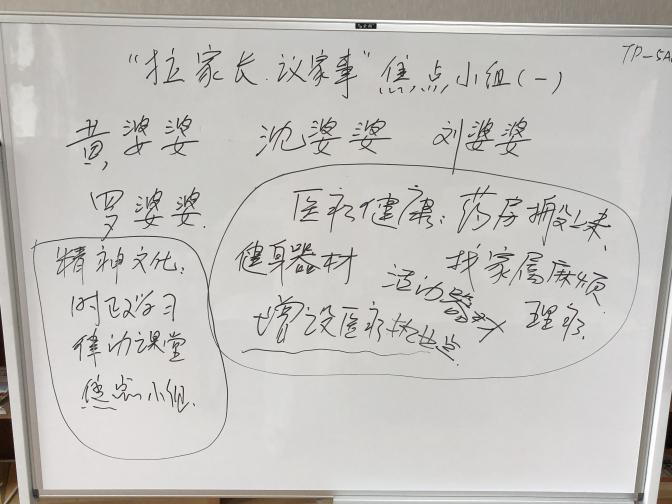 TP_5A
“拉家长.议家事”焦点小组(一)
黄婆婆 沈婆婆 刘婆婆
罗婆婆.
医疗健康：药房搬上来、
健身器材 找家属麻烦
活动器材 理疗、
增设医疗执业点
精神文化：
时政学习
律动课堂
焦点小组.